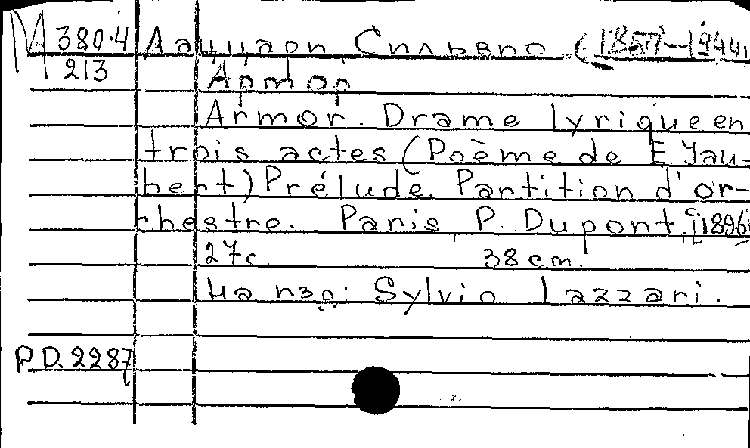 М 380.4 Лаццари, Сильвио (1857–1944)
213 Армор
Armor. Drame lyrique en
trois actes (Poème de E Jau-
bert) Prélude. Partition d'or-
chestre. Paris, P. Dupont, [1896
27с. 38 cm.
На пзо: Sylvio Lazzari.
P.D. 2287